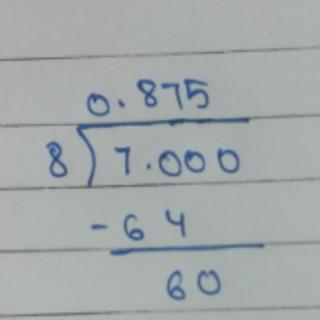 0.875
8)7.000
-64
60